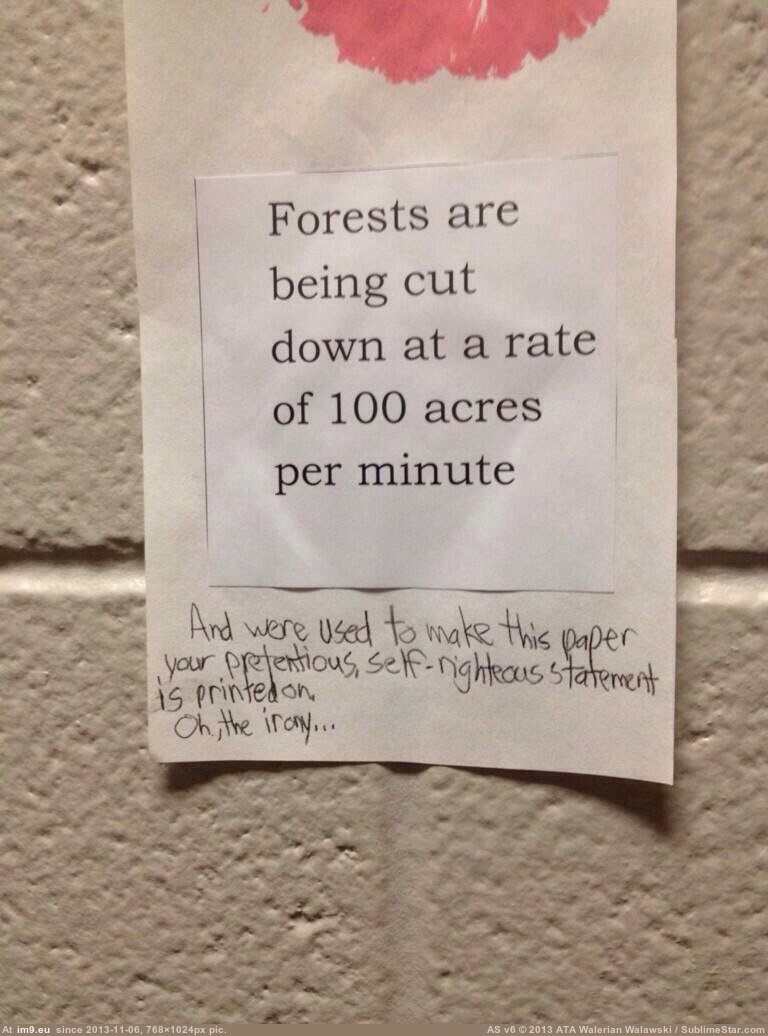 Forests are
being cut
down at a rate
of 100 acres
per minute
And were used to make this paper
your pretentious, self-righteous statement
is printed on.
Oh, the irony...
At im9.eu since 2013-11-06, 768×1024px pic. AS v6 © 2013 ATA Walerian Walawski / SublimeStar.com